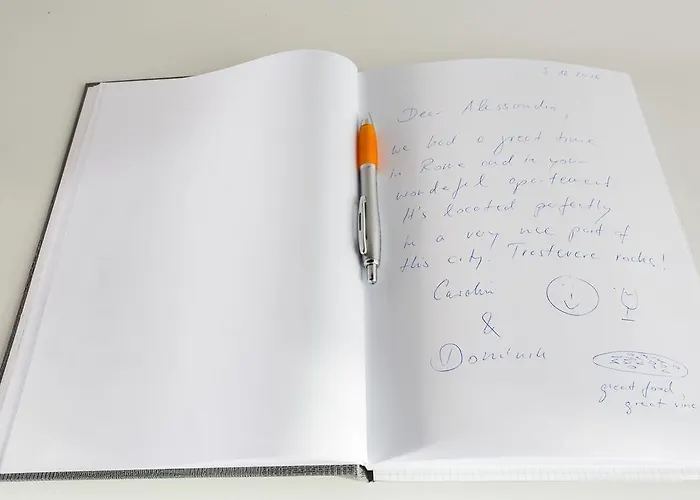 Dear Alessandro,
we had a great time
in Rome and in your
wondeful apartement
It's located perfectly
in a very nice part of
this city. Trastevere rocks!
Carolin
&
Dominik
great food,
great wine